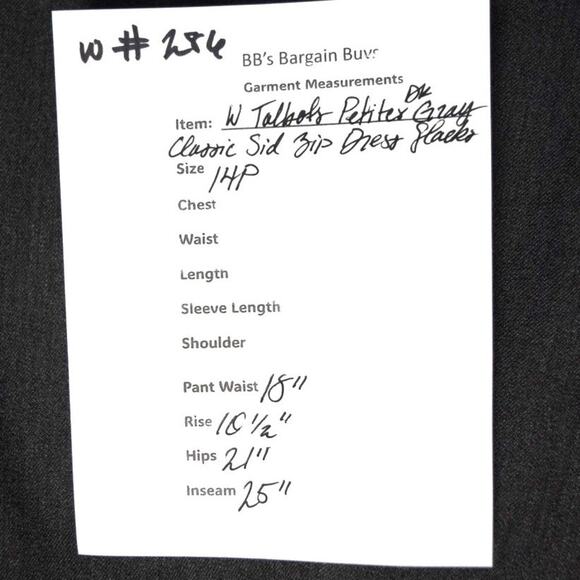 W # 286
BB's Bargain Buys
Garment Measurements
Item: W Talbots Petites DK Gray
Classic Sid Zip Dress Slacks
Size 14P
Chest
Waist
Length
Sleeve Length
Shoulder
Pant Waist 18"
Rise 10 1/2"
Hips 21"
Inseam 25"